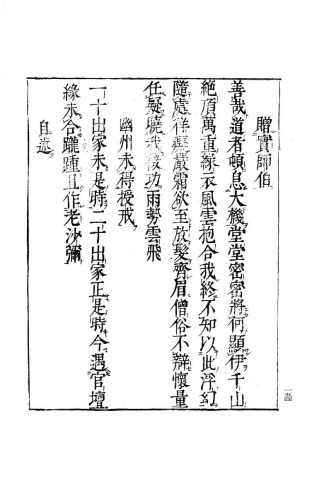 贈實師伯
善哉道者頓息大機堂堂密密將何顯伊千山
絶頂萬重緣衣風雲抱合我終不知以此浮幻
隨處徉嚴霜欲至放髮齊眉僧俗不辯懷量
任疑曉我後功雨勢雲飛
幽州未得授戒
一十出家未是時二十出家正是時今遇官壇
緣未合躘踵且作老沙彌
自述